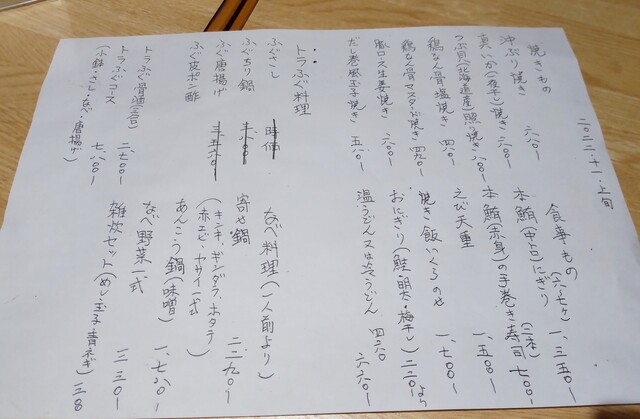 二〇二二・十一・上旬
焼きもの
沖ぶり焼き 六八〇ー
真いか(一夜干)焼き 六八〇ー
つぶ貝(北海道産)照り焼き 八八〇ー
鶏なん骨塩焼き 四八〇ー
鶏なん骨マスタード焼き 四九〇ー
豚ロース生姜焼き
だし巻風玉子焼き 五八〇ー
食事もの
本鮪(中トロ)にぎり(六〜七ヶ) 一、三五〇ー
本鮪(赤身)の手巻き寿司(二本) 七〇〇ー
えび天重 一、五〇〇ー
焼き飯いくらのせ 一、七〇〇ー
おにぎり(鮭・明太・梅干し) 二二〇より
温うどん又は冷うどん 四六〇 六六〇ー
トラふぐ料理
ふぐさし 時価
ふぐちり鍋
ふぐ唐揚げ
ふぐ皮ポン酢
トラふぐ骨酒(三合) 二七〇〇ー
トラふぐコース 七、八〇〇ー
(小鉢・さし・なべ・唐揚げ)
なべ料理(一人前より)
寄せ鍋 二二九〇ー
(キンキ、ギンダラ、ホタテ
赤エビ、ヤサイ一式)
あんこう鍋(味噌) 一、七八〇ー
なべ野菜一式
雑炊セット(めし・玉子・青ネギ) 三三〇ー